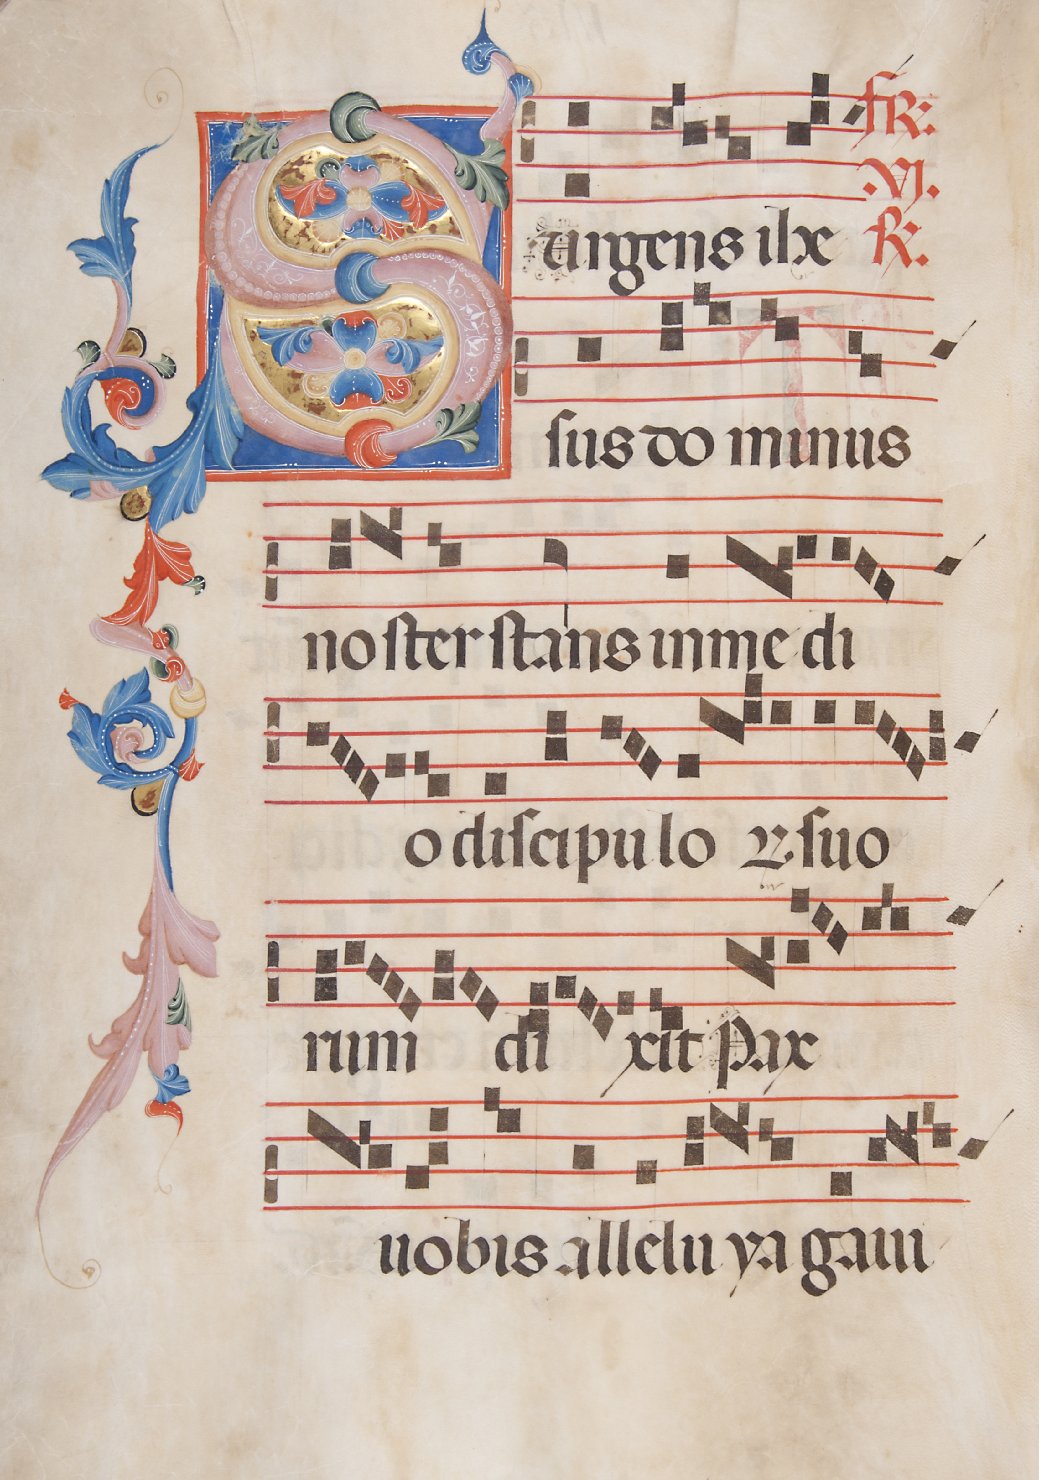 Surgens ihe fR:
.VI.
R.
sus do minus
noster stans in me di
o discipulo ꝝ suo
rum di xit pax
uobis allelu ya gaui